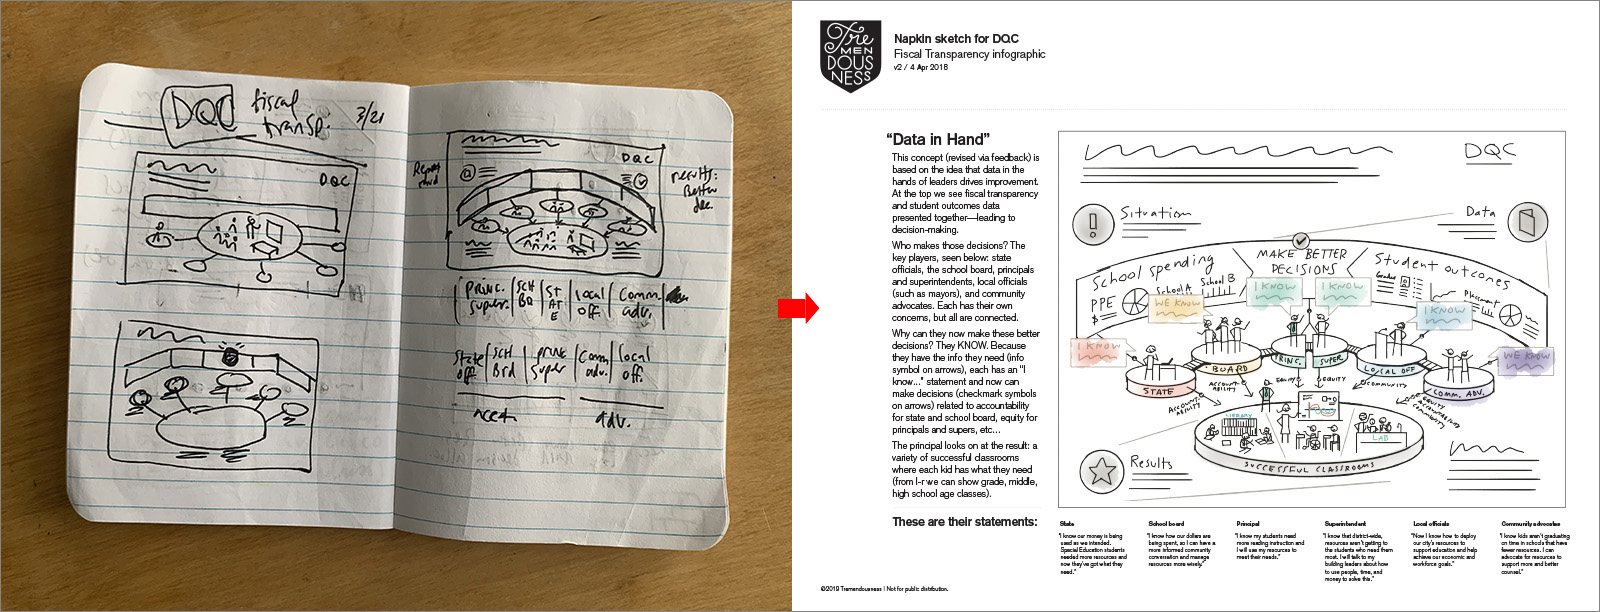 DQC
fiscal
transp.
3/21
DQC
DQC
results:
Better
dec.
Princ.
super.
SCH
BD
ST
AT
E
local
off.
Comm.
adv.
State
off.
SCH
Brd
princ
super
Comm
adv.
local
off.
need
adv.
Tre
MEN
DOUS
NESS
Napkin sketch for DQC
Fiscal Transparency infographic
v2 / 4 Apr 2018
“Data in Hand”
This concept (revised via feedback) is
based on the idea that data in the
hands of leaders drives improvement.
At the top we see fiscal transparency
and student outcomes data
presented together—leading to
decision-making.
Who makes those decisions? The
key players, seen below: state
officials, the school board, principals
and superintendents, local officials
(such as mayors), and community
advocates. Each has their own
concerns, but all are connected.
Why can they now make these better
decisions? They KNOW. Because
they have the info they need (info
symbol on arrows), each has an “I
know...” statement and now can
make decisions (checkmark symbols
on arrows) related to accountability
for state and school board, equity for
principals and supers, etc...
The principal looks on at the result: a
variety of successful classrooms
where each kid has what they need
(from l-r we can show grade, middle,
high school age classes).
These are their statements:
DQC
Situation
Data
School spending
MAKE BETTER
DECISIONS
Student outcomes
PPE
$
School A
School B
Grades
Placement
I KNOW
WE KNOW
I KNOW
I KNOW
I KNOW
WE KNOW
STATE
BOARD
PRINC.
SUPER
LOCAL OFF
COMM. ADV.
ACCOUNT-
ABILITY
ACCOUNT-
ABILITY
EQUITY
EQUITY
COMMUNITY
EQUITY
ACCOUNTABILITY
COMMUNITY
LIBRARY
LAB
SUCCESSFUL CLASSROOMS
Results
State
"I know our money is being
used as we intended.
Special Education students
needed more resources and
now they've got what they
need."
School board
"I know how our dollars are
being spent, so I can have a
more informed community
conversation and manage
resources more wisely."
Principal
"I know my students need
more reading instruction and
I will use my resources to
meet their needs."
Superintendent
"I know that district-wide,
resources aren't getting to
the students who need them
most. I will talk to my
building leaders about how
to use people, time, and
money to solve this."
Local officials
"Now I know how to deploy
our city's resources to
support education and help
achieve our economic and
workforce goals."
Community advocates
"I know kids aren't graduating
on time in schools that have
fewer resources. I can
advocate for resources to
support more and better
counsel."
©2019 Tremendousness | Not for public distribution.